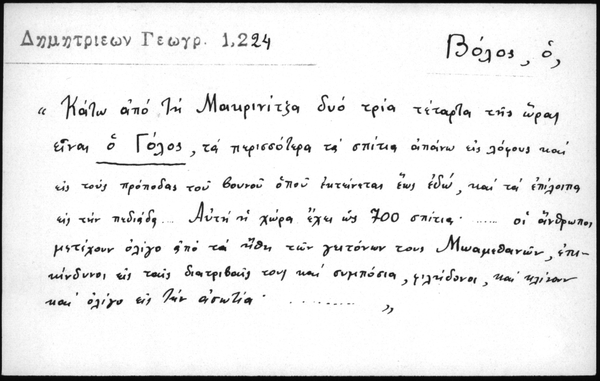 Δημητριεων Γεωγρ. 1,224
Βόλος, ὁ,
„ Κάτω ἀπό τή Μακρινίτζα δυό τρία τέταρτα τῆς ὥρας
εἶναι ὁ Γόλος, τά περισσότερα τά σπίτια ἀπάνω εἰς λόφους καί
εἰς τούς πρόποδας τοῦ βουνοῦ ὁπού ἐκτείνεται ἕως ἐδώ, καί τά ἐπίλοιπα
εἰς τήν πεδιάδα... Αὐτή ἡ χώρα ἔχει ὡς 700 σπίτια· ...... οἱ ἄνθρωποι
μετέχουν ὀλίγο ἀπό τά ἤθη τῶν γειτόνων τους Μωαμεθανῶν, ἐπι-
κίνδυνοι εἰς ταῖς διατριβαῖς τους καί συμπόσια, φιλήδονοι, καί κλίνουν
καί ὀλίγο εἰς τήν ἀσωτία· .......... „